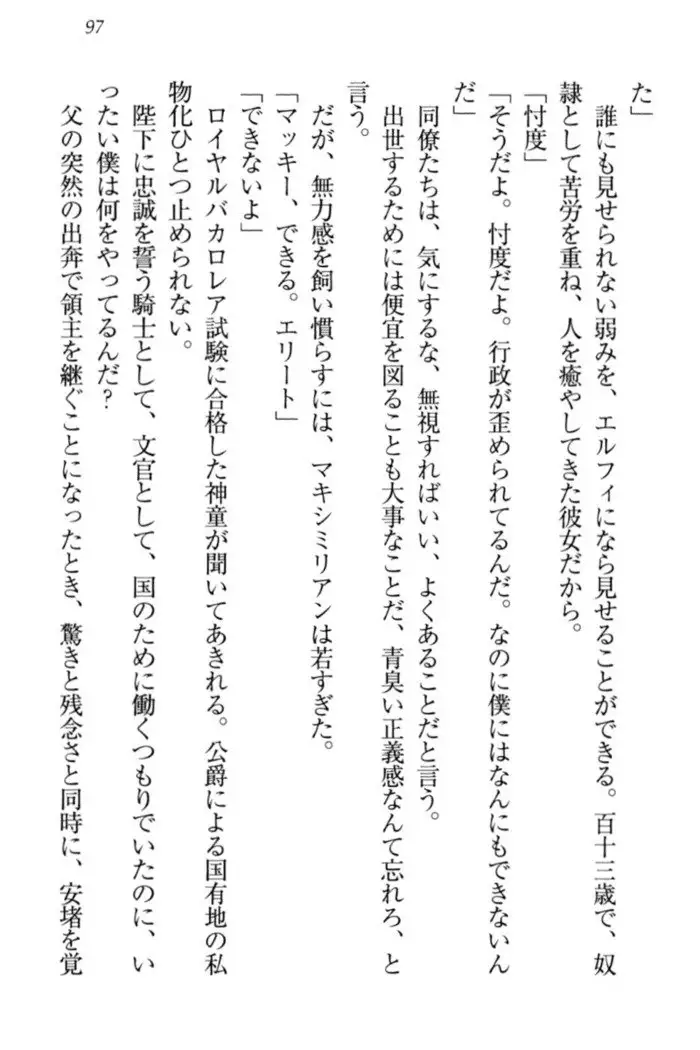 97
た」
誰にも見せられない弱みを、エルフィになら見せることができる。百十三歳で、奴
隷として苦労を重ね、人を癒やしてきた彼女だから。
「忖度」
「そうだよ。忖度だよ。行政が歪められてるんだ。なのに僕にはなんにもできないん
だ」
同僚たちは、気にするな、無視すればいい、よくあることだと言う。
出世するためには便宜を図ることも大事なことだ、青臭い正義感なんて忘れろ、と
言う。
だが、無力感を飼い慣らすには、マキシミリアンは若すぎた。
「マッキー、できる。エリート」
「できないよ」
ロイヤルバカロレア試験に合格した神童が聞いてあきれる。公爵による国有地の私
物化ひとつ止められない。
陛下に忠誠を誓う騎士として、文官として、国のために働くつもりでいたのに、い
ったい僕は何をやってるんだ?
父の突然の出奔で領主を継ぐことになったとき、驚きと残念さと同時に、安堵を覚